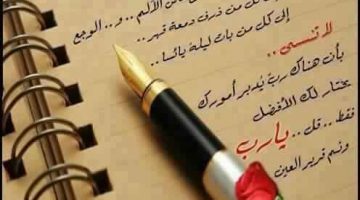 الألم .. و.. الوجع
كل من ذرف دمعة قهر ..
إلى كل من بات ليلة يائسا ..
لا تنسى ..
بأن هناك رب يُدبر أمورك
يختار لك الأفضل
فقط .. قل .. يا رب
ونم قرير العين